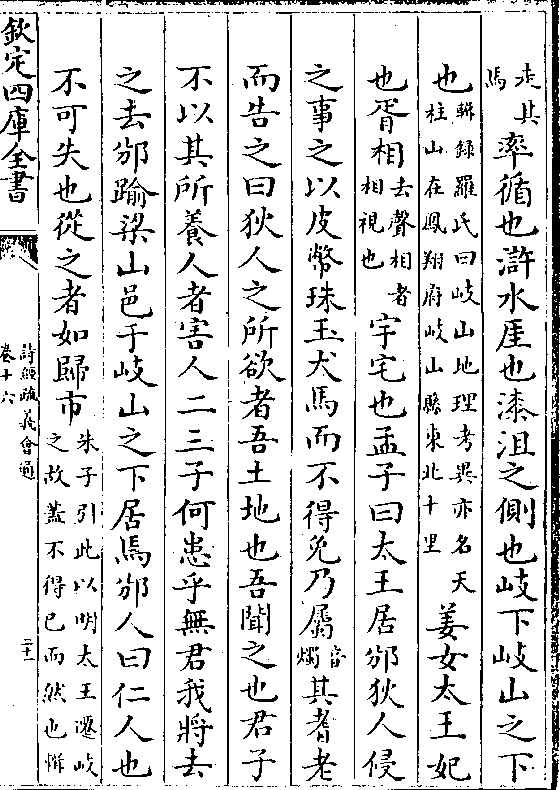 走其馬率循也滸水厓也漆沮之側也岐下岐山之下
也輯錄羅氏曰岐山地理考異亦名天柱山在鳳翔府岐山縣東北十里姜女太王妃
也胥相去聲相者相視也宇宅也孟子曰太王居邠狄人侵
之事之以皮幣珠玉犬馬而不得免乃屬音燭其耆老
而告之曰狄人之所欲者吾土地也吾聞之也君子
不以其所養人者害人二三子何患乎無君我將去
之去邠踰梁山邑于岐山之下居焉邠人曰仁人也
不可失也從之者如歸市朱子引此以明太王遷岐之故蓋不得已而然也輯
欽定四庫全書
詩經疏義會通
卷十六
二十一